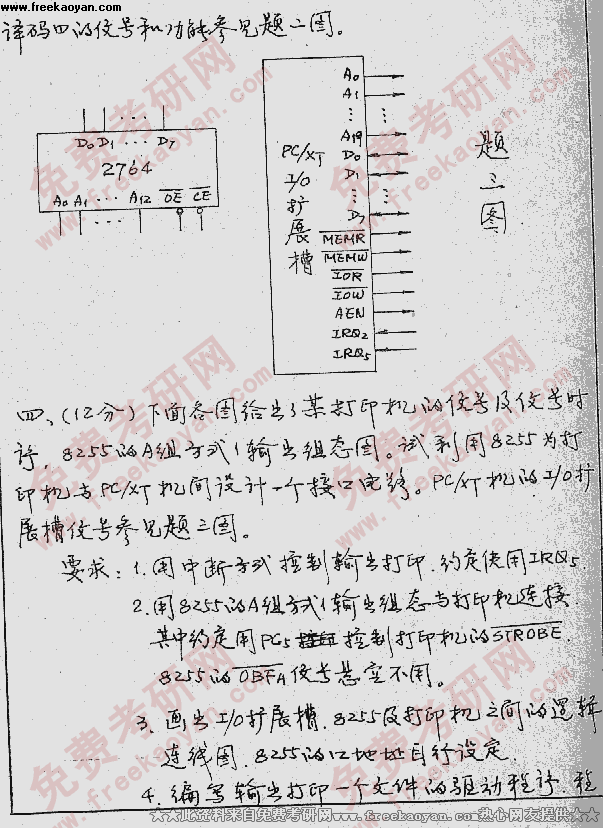 www.freekaoyan.com
译码四的信号和功能参见题二图。
D0 D1 ··· D7
2764
A0 A1 ··· A12 OE CE
PC/XT
I/O
扩
展
槽
A0
A1
⋮
A19
D0
D1
⋮
D7
MEMR
MEMW
IOR
IOW
AEN
IRQ2
IRQ5
题
三
图
四、(12分) 下面各图给出了某打印机的信号及信号时
序, 8255的A组方式1输出组态图。试利用8255为打
印机与PC/XT机间设计一个接口电路。PC/XT机的I/O扩
展槽信号参见题三图。
要求: 1. 用中断方式控制输出打印. 约定使用IRQ5.
2. 用8255的A组方式1输出组态与打印机连接.
其中约定用PC5控制打印机的STROBE.
8255的OBFA信号悬空不用。
3. 画出I/O扩展槽. 8255及打印机之间的逻辑
连线图. 8255的口地址自行设定.
4. 编写输出打印一个文件的驱动程序. 程
★☆此资料来自免费考研网www.freekaoyan.com热心网友提供★☆
免费考研网
www.freekaoyan.com